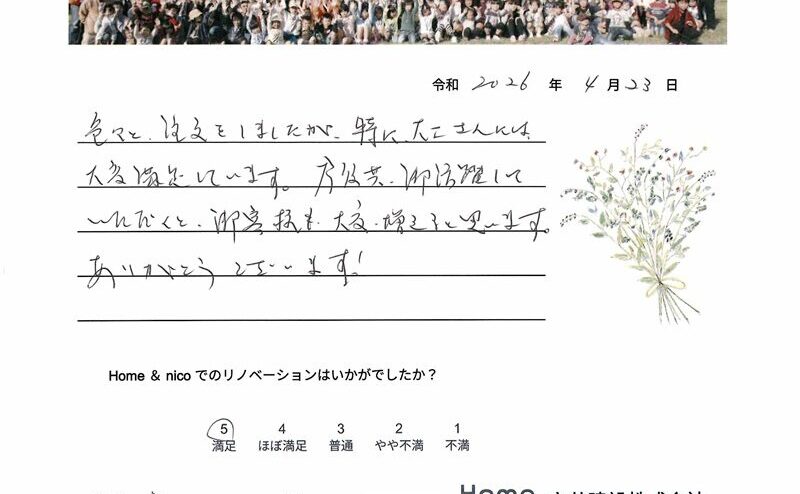 令和 2026 年 4 月 23 日
色々と、注文をしましたが、特に、大工さんには、
大変満足しています。今後共、御活躍して
いただくと、御客様も、大変、増えると思います。
ありがとうございます!
Home & nicoでのリノベーションはいかがでしたか?
5 4 3 2 1
満足 ほぼ満足 普通 やや不満 不満
Home